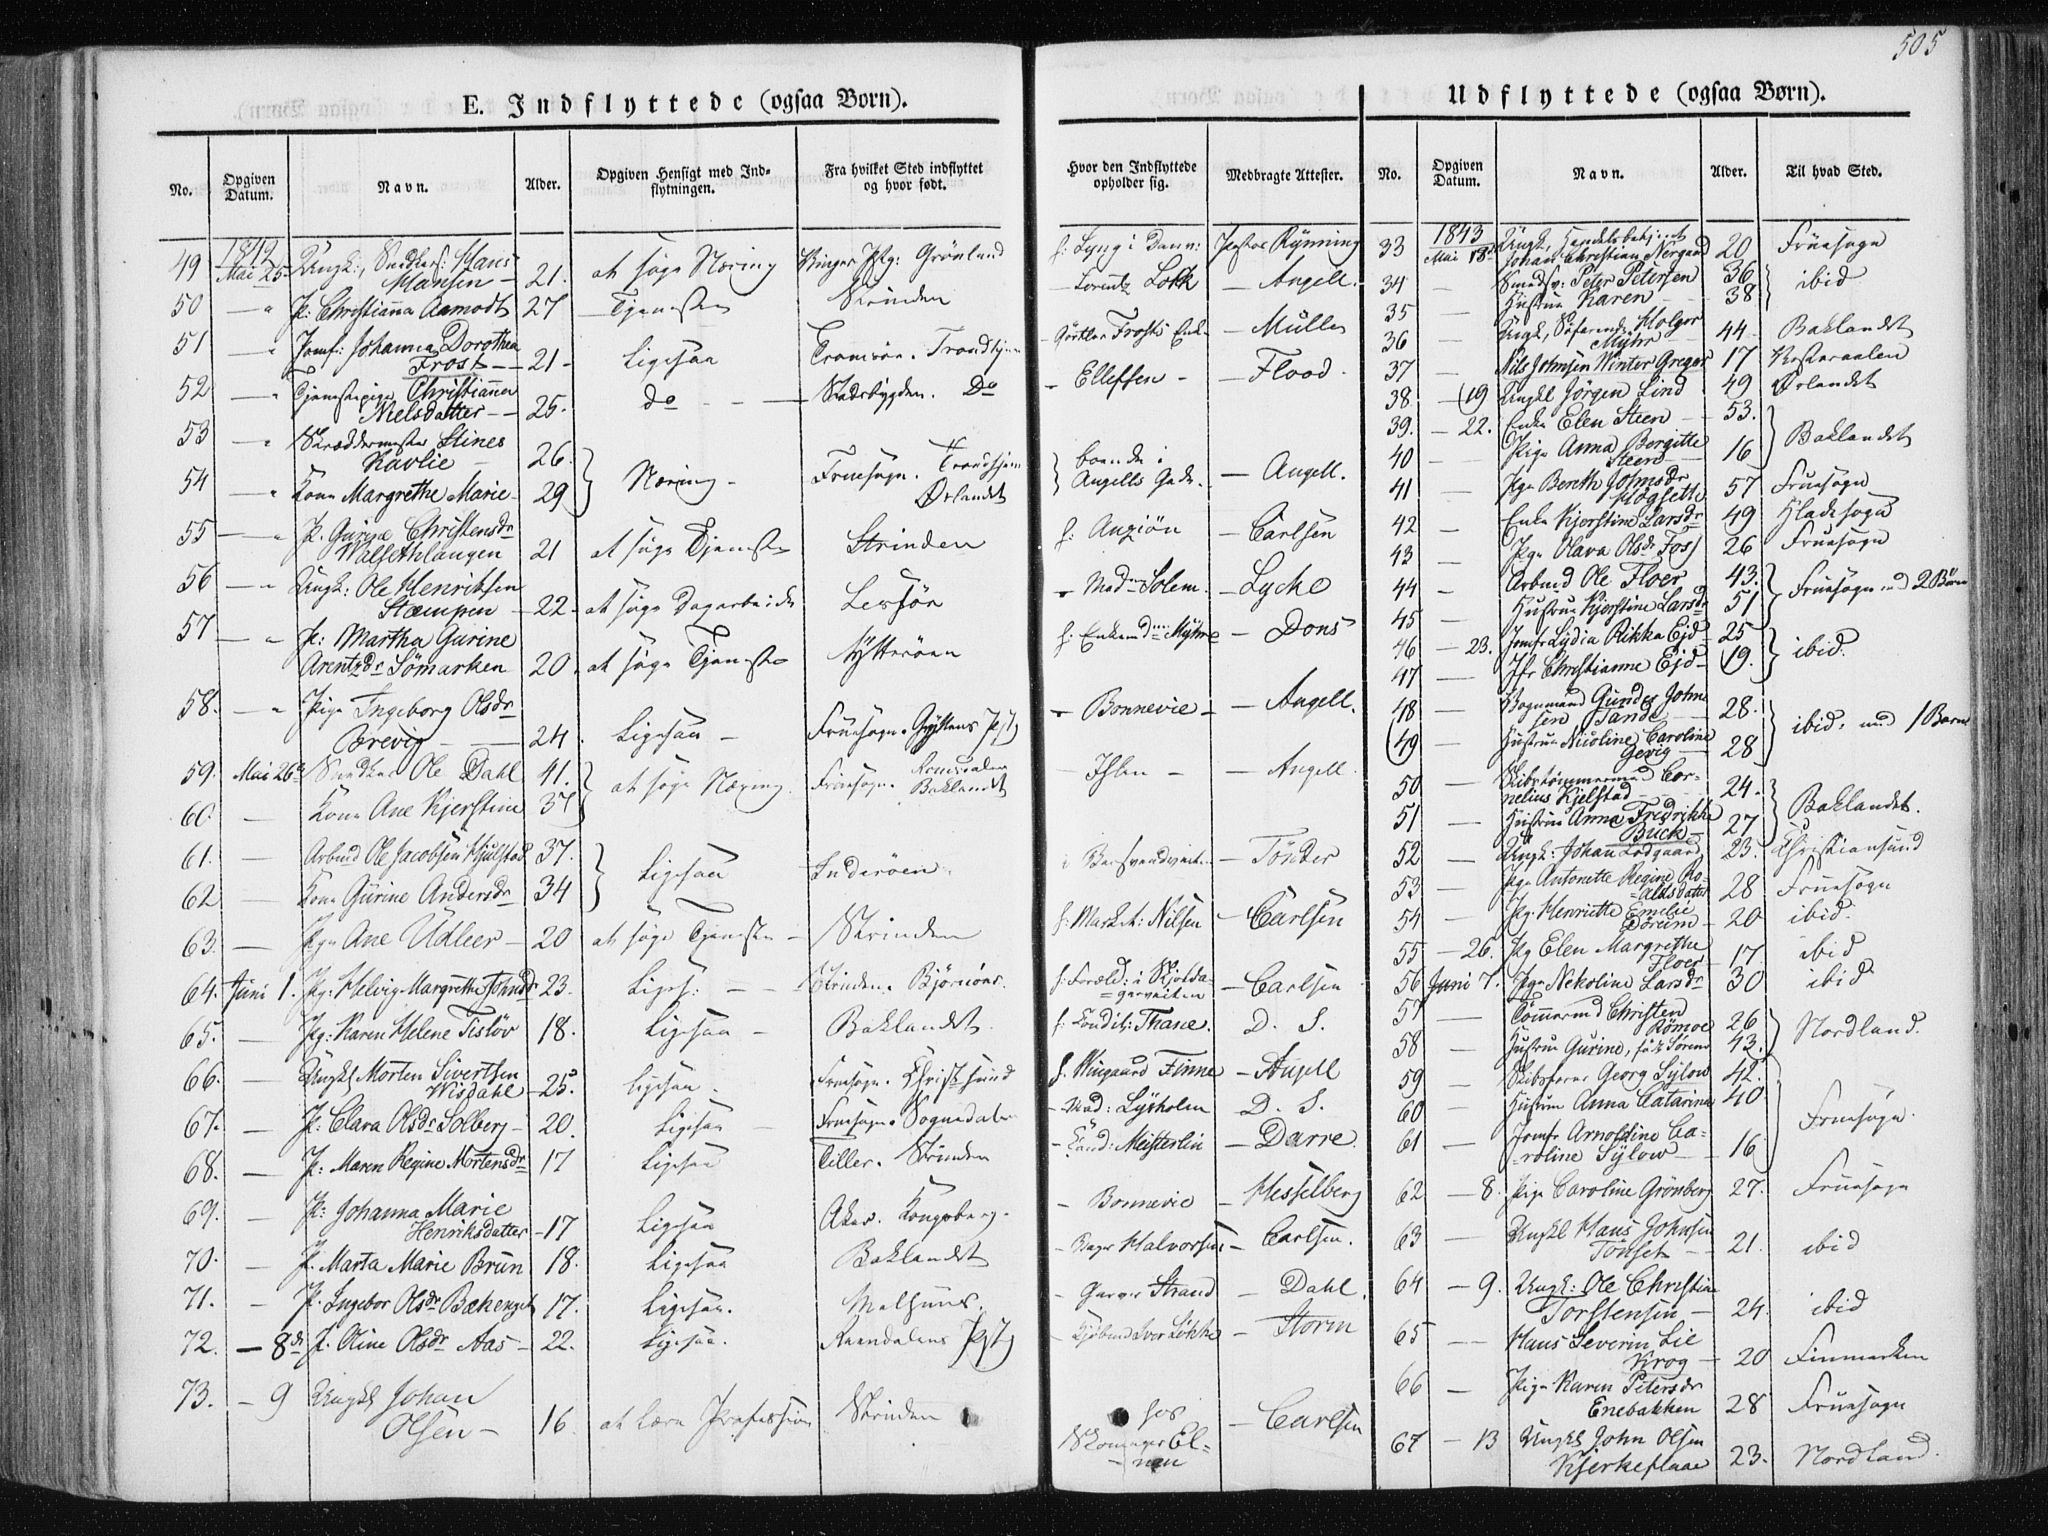 505
E. Indflyttede (ogsaa Born).
Udflyttede (ogsaa Børn).
No. Opgiven Datum. Navn. Alder. Opgiven Hensigt med Indflytningen. Fra hvilket Sted indflyttet og hvor født. Hvor den Indflyttede opholder sig. Medbragte Attester.
49 1842 Mai 25 Ungk: Hans Hansen 21. at søge Næring Grönland f: Lyng i Pastor Rynning
50 — " P: Christianna Aamodt 27 Tjeneste Strinden — Lorentz Lökk — Angell.
51 — " Jomf: Johanna Dorothea Frost — 21 - Ligesaa Tromsöe. Trondhjem Frosts Enk. — Müller
52 — " Tjenestepige Christianna Nielsdatter — 25. do — Stadsbygden. Do — Elleffsen — Flood.
53 — " Skræddermester Stines Kavlie — 26. Næring — Fruesogn. Trondhjem boende i Angells Gade. — Angell.
54 — " Kone Margrethe Marie 29 Ørlandet
55 — " P. Gurine Christensdr 21 at søge Tjeneste Strinden f: Anziön — Carlsen
56 — " Ungk: Ole Henriksen Stæmpen — 22 - at søge Dagarbeide Lexsön — Madm Solem. — Lycke
57 — " P: Martha Gurine Arentzdr Sömarken 20. at søge Tjeneste Hytteröen f: Enkemdm: Myhre — Dons
58. — " Pige Ingeborg Olsdr Brevig — 24. Ligesaa — Fruesogn. Gryttens Pgf — Bonnevie — — Angell.
59. Mai 26 Snedker Ole Dahl 41. at søge Næring. Fruesogn. Romsdalen — Ihlen — — Angell.
60. — Kone Ane Kjerstine 37 Baklandet
61. — Arbmd Ole Jacobsen Hjulstad 37. Ligesaa Inderöen. i — Tönder
62 — Kone Gurine Andersdr 34
63. — Pge Ane Udleer — 20 at søge Tjeneste — Strinden f: Nilsen — Carlsen
64. Juni 1. Pg: Helvig Margrethe 23. Liges: — Strinden. Björnöer. f: Foræld: i — Carlsen
65. — Pg: Karen Helene Tislöv 18. Ligesaa — Baklandet. f: Condit: Thane. D. S.
66. — Ungkl Morten Sivertsen Wisdahl — 25. Ligesaa. Fruesogn. Christsund f. Wingaard Finne — Angell
67. — P: Clara Olsdr Solberg — 20. Ligesaa — Fruesogn. Sognedalen — Mad: Lysholm — D. S.
68. — P: Maren Regine Mortensdr 17 Ligesaa Tiller. Strinden — Cand: Meisterlin — Darre.
69. — P: Johanna Marie Henriksdatter — 17 Ligesaa Aker. Kongsberg. — Bonnevie — Hesselberg
70. — P. Marta Marie Brun 18. Ligesaa Baklandet — Bager Halvorsen — Carlsen.
71. — P. Ingebor Olsdr Bækenget 17. Ligesaa. Melhuus. — Garver Strand — Dahl.
72. — 8de P. Oline Olsdr Aas — 22. Ligesaa. Rendalens Pgf — Kjöbmd Iver Lökke — Storm
73. — 9 Ungkl Johan Olsen — 16 at lære Profession Strinden hos Skomager — Carlsen
No. Opgiven Datum. Navn. Alder. Til hvad Sted.
33 1843 Mai 18de Ungk, Johan Christian Nergaard 20 Fruesogn
34 — Smedsv: Peter Petersen 36 ibid
35 — Hustrue Karen — 38
36 — Ungk, Søfarende Holger Myhr — 44 — Baklandet
37 — Nils Johnsen Winter Greger 17 Vesteraalen
38 — 19 Ungkl Jörgen Lind 49 Ørlandet
39. — 22. Enke Elen Steen — 53. Baklandet
40 — Pige Anna Bergitte Steen — 16
41 — Pge Bereth Johnsdr Mogseth 57 Fruesogn
42 — Enke Kjerstine Larsdr 49 Hladesogn
43 — Pge Olava Olsdr Foss 26 Fruesogn
44 — Arbmd Ole Floer — 43. Fruesogn med 2 Børn
45 — Hustrue Kjerstine Larsdr 51
46 — 23. Jomfr Lydia Rikka Ejd — 25 ibid.
47 — Jfr Christianne Ejd — 19.
48 — Vognmand Gunder Johnsen Tande — 28. ibid. med 1 Barn
49 — Hustrue Nicoline Caroline Gevig — 28
50 — Skibstømmermd Cornelius Kjelstad — 24. Baklandet.
51 — Hustrue Anna Fredrikke Buck — 27
52 — Ungk: Johan Lodgaard 23. Christiansund
53 — Pge Antonette Regine Roaldsdatter 28 Fruesogn
54 — Pg: Henriette Emelie — 20 ibid.
55 — 26. Pg Elen Margrethe Floer — 17. ibid
56 Juni 7. Pge Nekoline Larsdr 30 ibid
57 — Tømermd Christen Römoe 26 Nordland.
58 — Hustrue Gurine, 43.
59 — Skibsfører Georg Sylow 42. Fruesogn.
60 — Hustrue Anna Catarina 40.
61 — Jomfr Arnoldine Caroline Sylow — 16
62 — 8. Pige Caroline Grönberg 27. Fruesogn
63 — Ungkl Hans Johnsen Tönset — 21. ibid
64 — 9. Ungk: Ole Christian Torstensen — 24. ibid
65 — Hans Severin Lie Krog — 20 Finmarken
66 — Pige Karen Petersdr Enebakken 28 Fruesogn
67 — 13 Ungkl John Olsen Kjerkeflaae 23. Nordland.